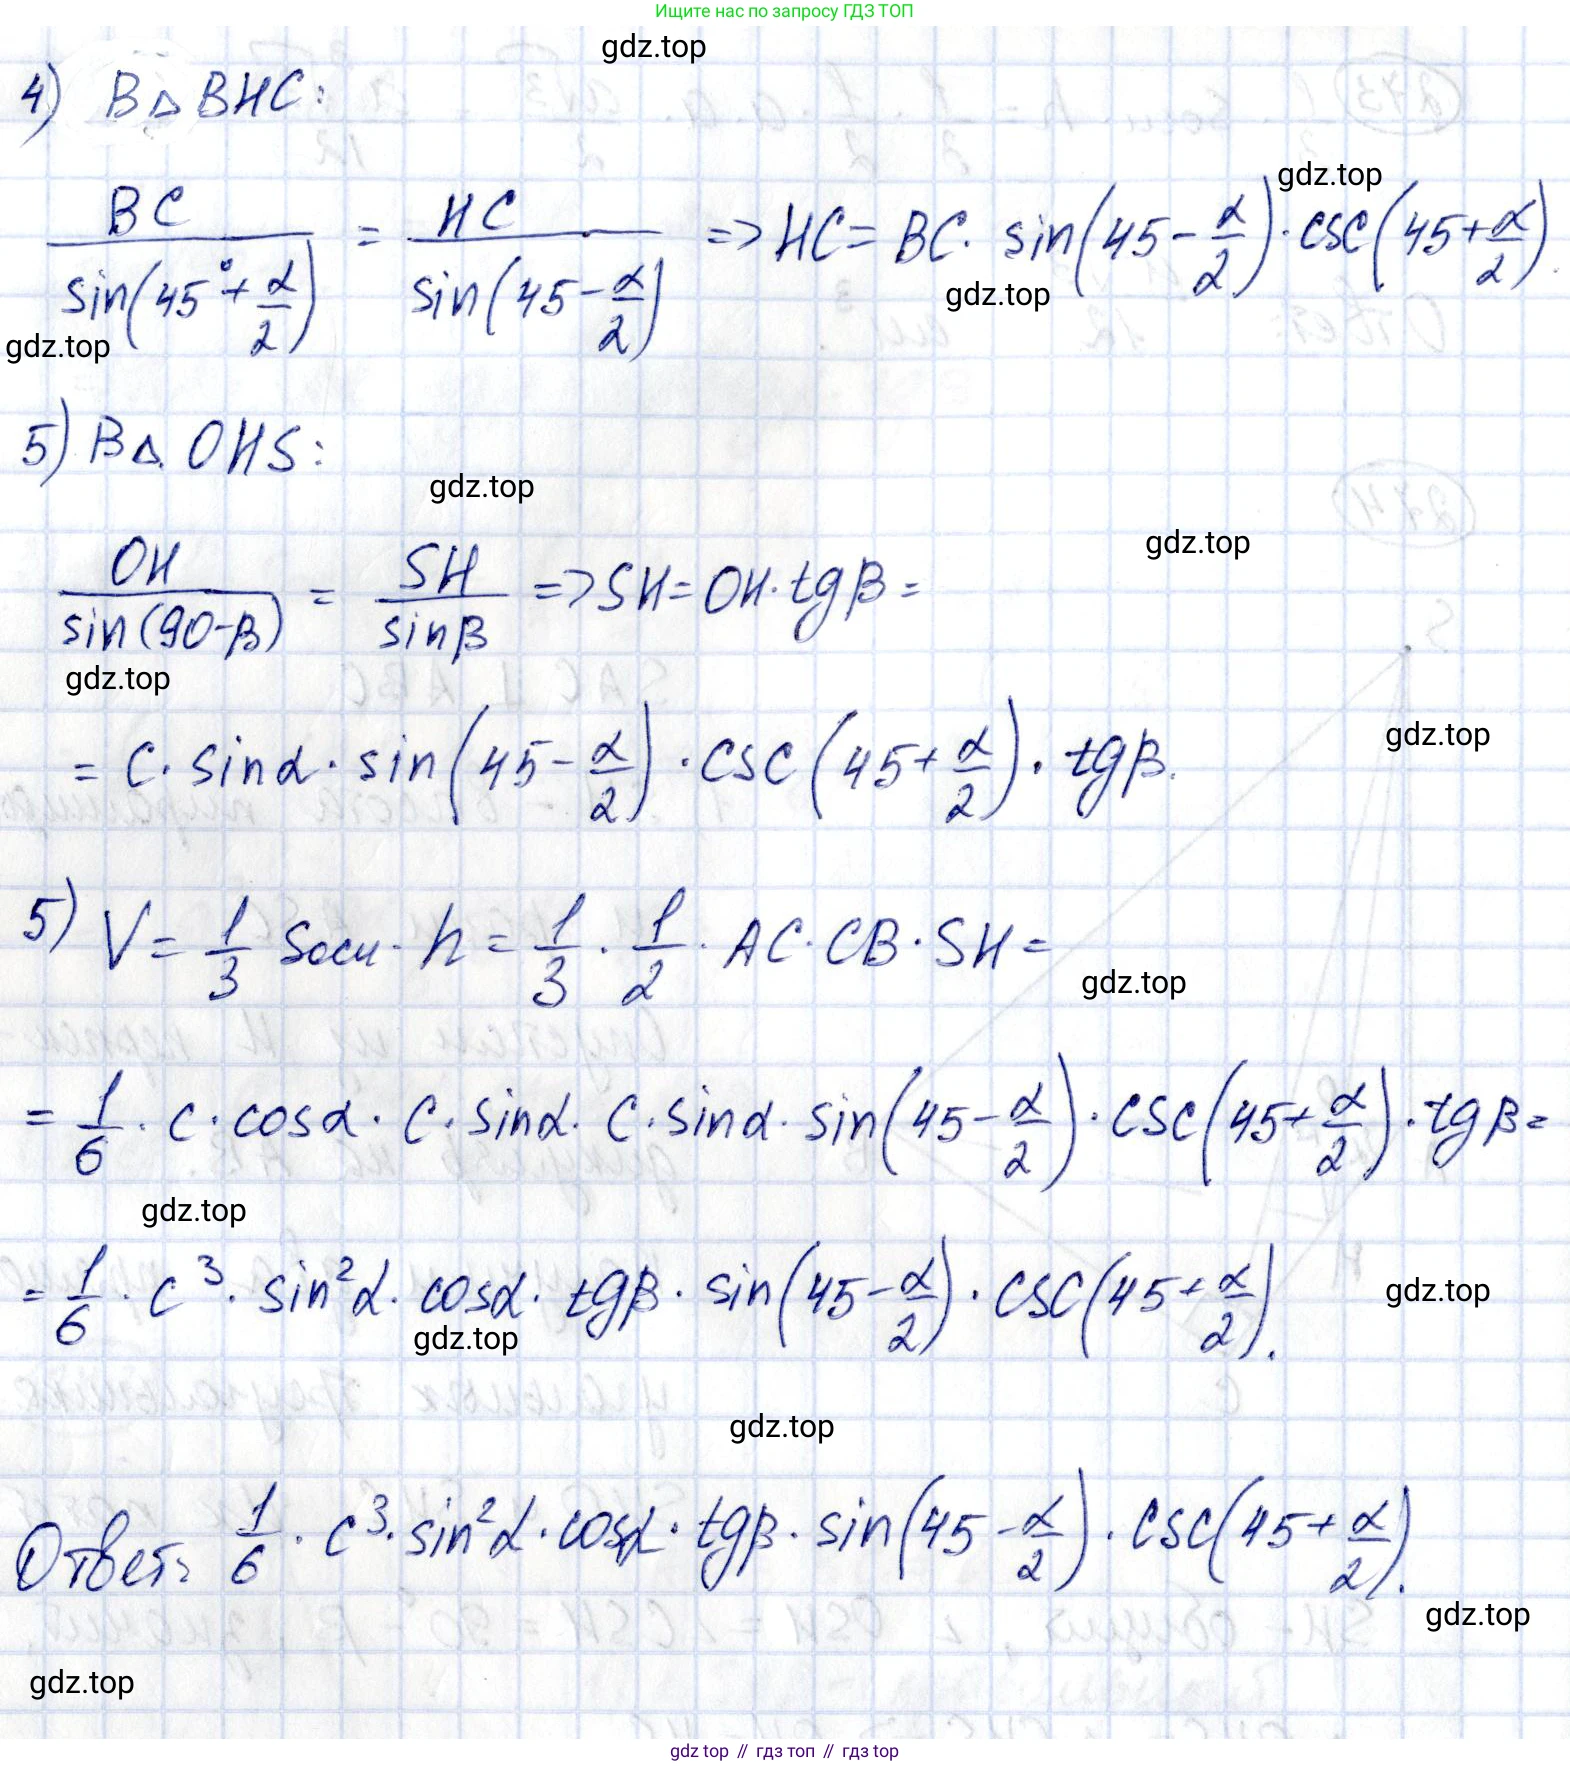 Ищите нас по запросу ГДЗ ТОП
gdz.top
4) В △ BHC:
gdz.top
BC / sin(45° + α/2) = HC / sin(45 - α/2) => HC = BC · sin(45 - α/2) · csc(45 + α/2).
gdz.top
gdz.top
5) В △ OHS:
gdz.top
gdz.top
OH / sin(90-β) = SH / sinβ => SH = OH · tgβ =
gdz.top
gdz.top
= c · sinα · sin(45 - α/2) · csc(45 + α/2) · tgβ.
5) V = 1/3 Sосн · h = 1/3 · 1/2 · AC · CB · SH =
gdz.top
= 1/6 · c · cosα · c · sinα · c · sinα · sin(45 - α/2) · csc(45 + α/2) · tgβ =
gdz.top
= 1/6 · c³ · sin²α · cosα · tgβ · sin(45 - α/2) · csc(45 + α/2).
gdz.top
gdz.top
gdz.top
Ответ: 1/6 · c³ · sin²α · cosα · tgβ · sin(45 - α/2) · csc(45 + α/2).
gdz.top
gdz.top
gdz.top // гдз топ // гдз top